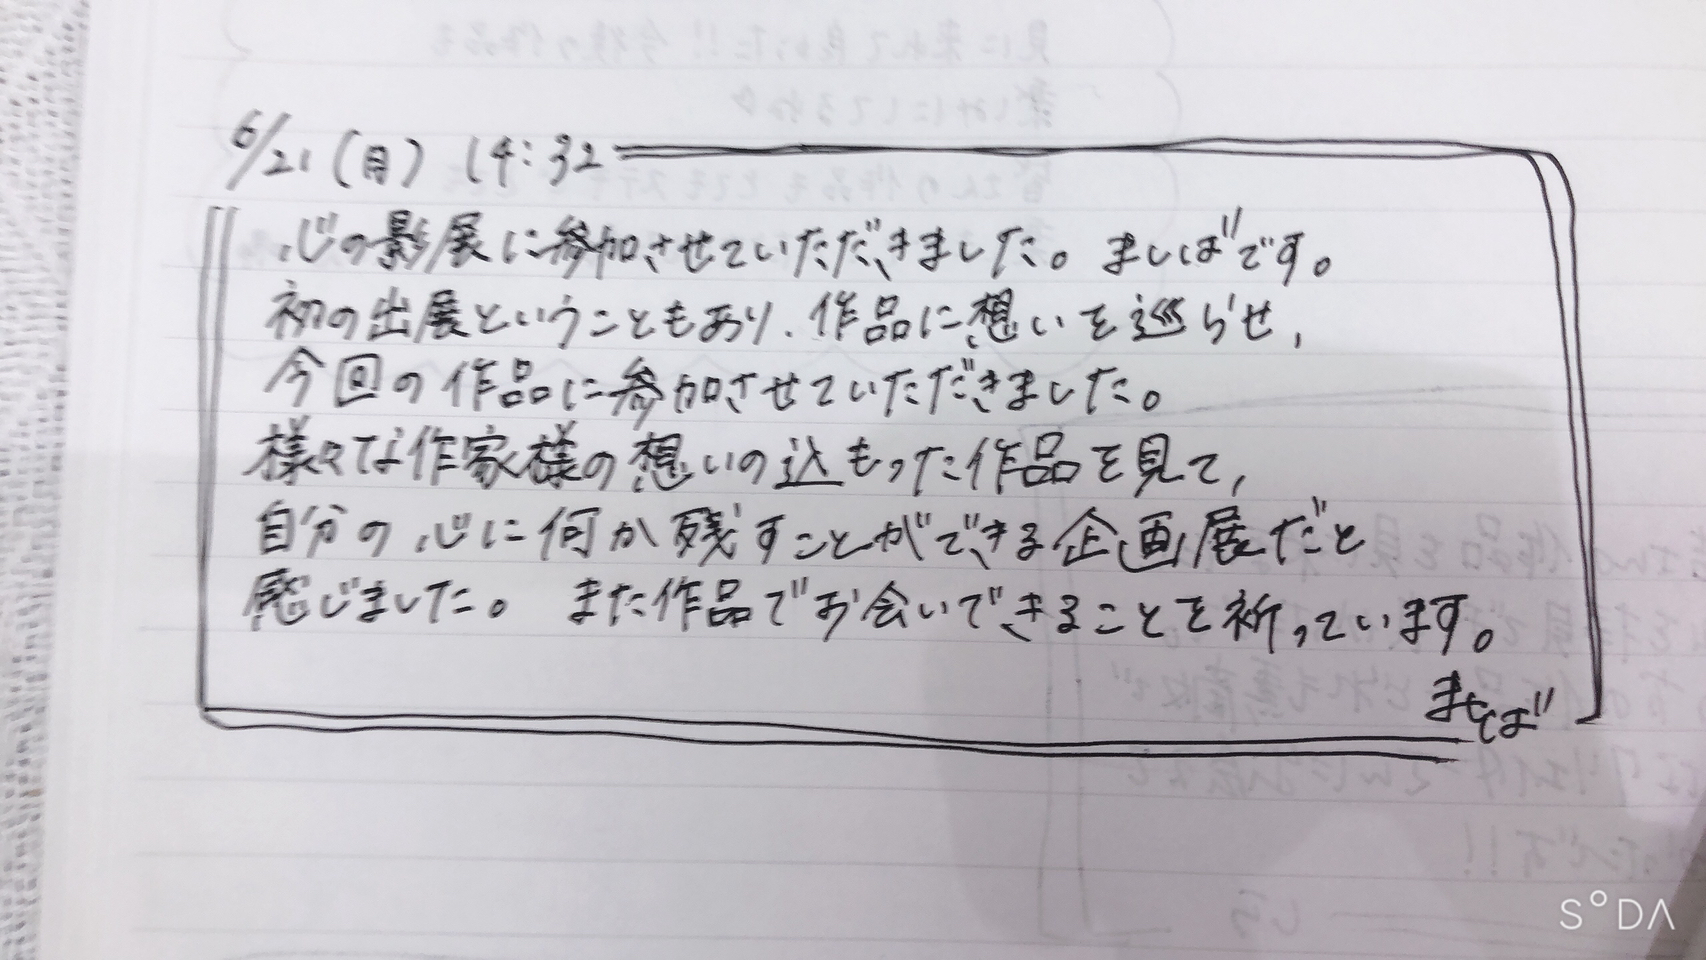 6/21(月) 14:32
心の影展に参加させていただきました。ましばです。
初の出展ということもあり、作品に想いを巡らせ、
今回の作品に参加させていただきました。
様々な作家様の想いの込もった作品を見て、
自分の心に何か残すことができる企画展だと
感じました。 また作品でお会いできることを祈っています。
ましば
SODA